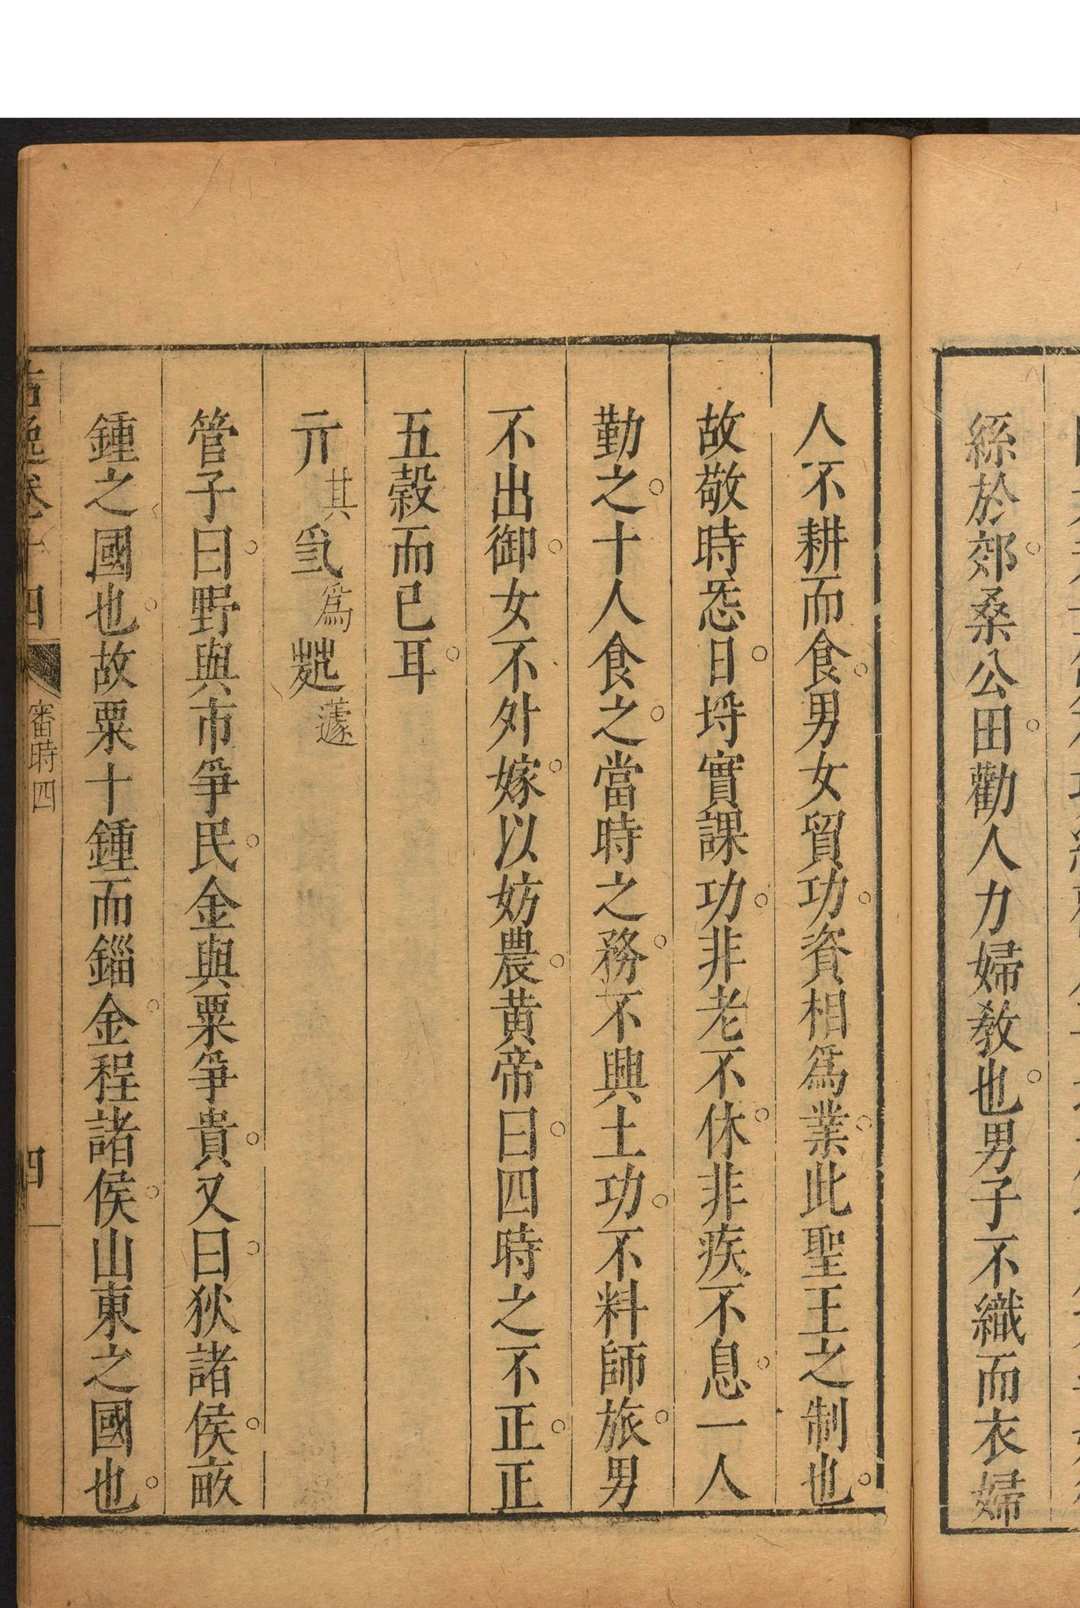 絲於郊桑公田勸人力婦教也男子不織而衣婦
人不耕而食男女貿功資相爲業此聖王之制也
故敬時㤅日埒實課功非老不休非疾不息一人
勤之十人食之當時之務不興土功不料師旅男
不出御女不外嫁以妨農黃帝曰四時之不正正
五穀而已耳
亓其 爲 蘧
管子曰野與市爭民金與粟爭貴又曰狄諸侯畝
鍾之國也故粟十鍾而錙金程諸侯山東之國也
古逸卷十四 審時四 四